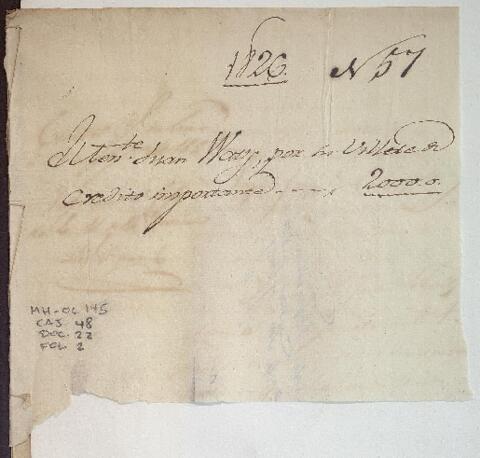 1826. N 57
Al Ten.te Juan Wary, por un Villete de
Credito importante - - - - , 2000 0.
MH-OL 145
CAJ 48
DOC. 22
FOL 2